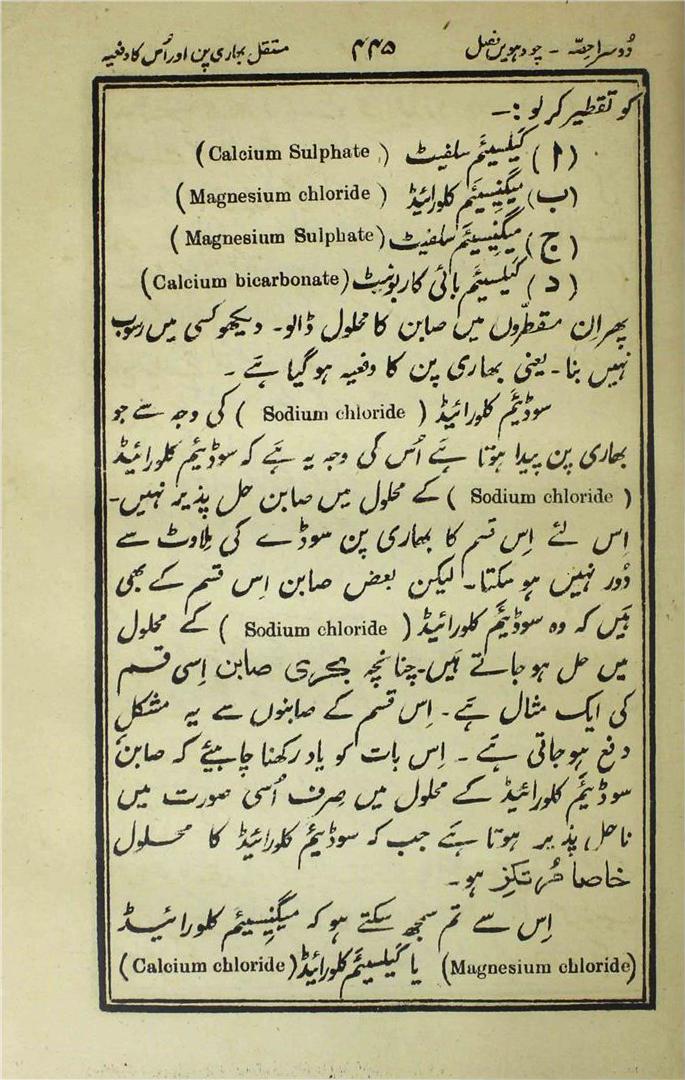 دُوسرا حِصّہ - چودہویں فصل ۴۴۵ مستقل بھاری پن اور اُس کا دفعیہ
کو تقطیر کر لو :-
( ا ) کیلسیئَم سلفیٹ ( Calcium Sulphate )
(ب) میگنِیسیئَم کلورائیڈ ( Magnesium chloride )
( ج ) میگنِیسیئَم سلفیٹ (Magnesium Sulphate )
( د ) کیلسیئَم بائی کاربونیٹ (Calcium bicarbonate)
پھر اِن مقطّروں میں صابن کا محلول ڈالو۔ دیکھو کسی میں رسوب
نہیں بنا۔ یعنی بھاری پن کا دفعیہ ہو گیا ہے ۔
سوڈیئَم کلورائیڈ ( Sodium chloride ) کی وجہ سے جو
بھاری پن پیدا ہوتا ہے اُس کی وجہ یہ ہے کہ سوڈیئَم کلورائیڈ
( Sodium chloride ) کے محلول میں صابن حل پذیر نہیں۔
اِس لئے اِس قسم کا بھاری پن سوڈے کی مِلاوٹ سے
دُور نہیں ہو سکتا۔ لیکن بعض صابن اِس قسم کے بھی
ہیں کہ وہ سوڈیئَم کلورائیڈ ( Sodium chloride ) کے محلول
میں حل ہو جاتے ہیں۔ چنانچہ بحری صابن اِسی قسم
کی ایک مثال ہے۔ اِس قسم کے صابنوں سے یہ مشکل
دفع ہو جاتی ہے ۔ اِس بات کو یاد رکھنا چاہیئے کہ صابن
سوڈیئَم کلورائیڈ کے محلول میں صِرف اُسی صورت میں
ناحل پذیر ہوتا ہے جب کہ سوڈیئَم کلورائیڈ کا محلول
خاصا مُرتکِز ہو۔
اِس سے تم سمجھ سکتے ہو کہ میگنِیسیئَم کلورائیڈ
(Magnesium chloride) یا کیلسیئَم کلورائیڈ (Calcium chloride)